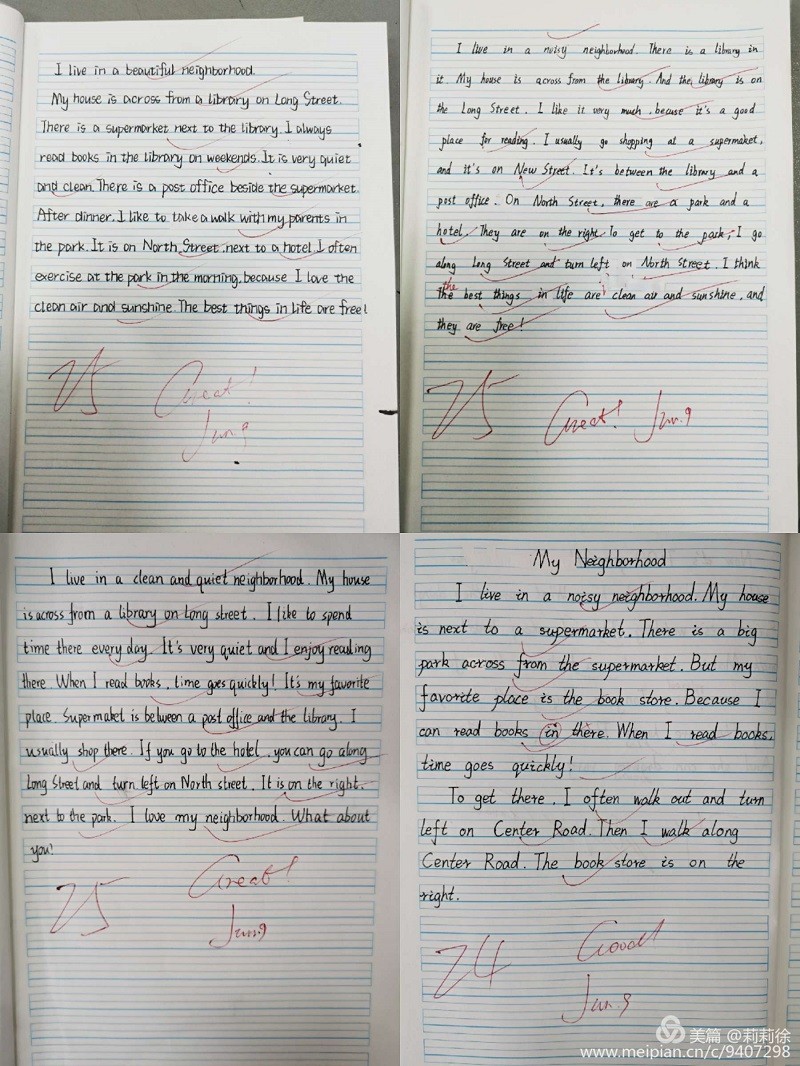 I live in a beautiful neighborhood.
My house is across from a library on Long Street.
There is a supermarket next to the library. I always
read books in the library on weekends. It is very quiet
and clean. There is a post office beside the supermarket.
After dinner, I like to take a walk with my parents in
the park. It is on North Street, next to a hotel. I often
exercise at the park in the morning, because I love the
clean air and sunshine. The best things in life are free!
25
Great!
Jun.9
I live in a noisy neighborhood. There is a library in
it. My house is across from the library. And the library is on
the Long Street. I like it very much, becuse it's a good
place for reading. I usually go shopping at a supermaket,
and it's on New Street. It's between the library and a
post office. On North Street, there are a park and a
hotel. They are on the right. To get to the park, I go
along Long Street and turn left on North Street. I think
the
the best things in life are clean air and sunshine, and
they are free!
25 Great! Jun.9
I live in a clean and quiet neighborhood. My house
is across from a library on Long street. I like to spend
time there every day. It's very quiet and I enjoy reading
there. When I read books, time goes quickly! It's my favorite
place. Supermaket is between a post office and the library. I
usually shop there. If you go to the hotel, you can go along
Long Street and turn left on North street. It is on the right.
next to the park. I love my neighborhood. What about
you?
25
Great!
Jun.9
My Neighborhood
I live in a noisy neighborhood. My house
is next to a supermarket. There is a big
park across from the supermarket. But my
favorite place is the book store. Because I
can read books in there. When I read books,
time goes quickly!
To get there, I often walk out and turn
left on Center Road. Then I walk along
Center Road. The book store is on the
right.
24
Good!
Jun.9
美篇 @莉莉徐
www.meipian.cn/c/9407298